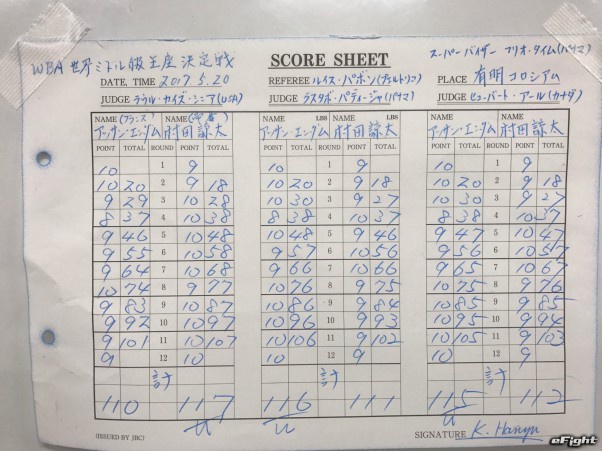 WBA 世界ミドル級王座決定戦
SCORE SHEET
スーパーバイザー フリオ・タイム(パナマ)
DATE, TIME 2017.5.20
REFEREE ルイス・パボン(プエルトリコ)
PLACE 有明コロシアム
JUDGE ラウル・カイズ・シニア(USA)
JUDGE グスタボ・パディージャ(パナマ)
JUDGE ヒューバート・アール(カナダ)
NAME (フランス) NAME LBS NAME LBS NAME NAME
アッサン・エンダム 村田諒太 アッサン・エンダム 村田諒太 アッサン・エンダム 村田諒太
POINT TOTAL ROUND POINT TOTAL POINT TOTAL ROUND POINT TOTAL POINT TOTAL ROUND POINT TOTAL
10 1 9 10 1 9 10 1 9
10 20 2 9 18 10 20 2 9 18 10 20 2 9 18
9 29 3 10 28 10 30 3 9 27 10 30 3 9 27
8 37 4 10 38 8 38 4 10 37 8 38 4 10 37
9 46 5 10 48 10 48 5 9 46 9 47 5 10 47
9 55 6 10 58 9 57 6 10 56 9 56 6 10 57
9 64 7 10 68 9 66 7 10 66 9 65 7 10 67
10 74 8 9 77 10 76 8 9 75 10 75 8 9 76
9 83 9 10 87 10 86 9 9 84 10 85 9 9 85
9 92 10 10 97 10 96 10 9 93 10 95 10 9 94
9 101 11 10 107 10 106 11 9 102 10 105 11 9 103
9 12 10 10 12 9 10 12 9
計 計 計
110 117 116 111 115 112
(ISSUED BY JBC)
SIGNATURE K. Hanyu
eFight